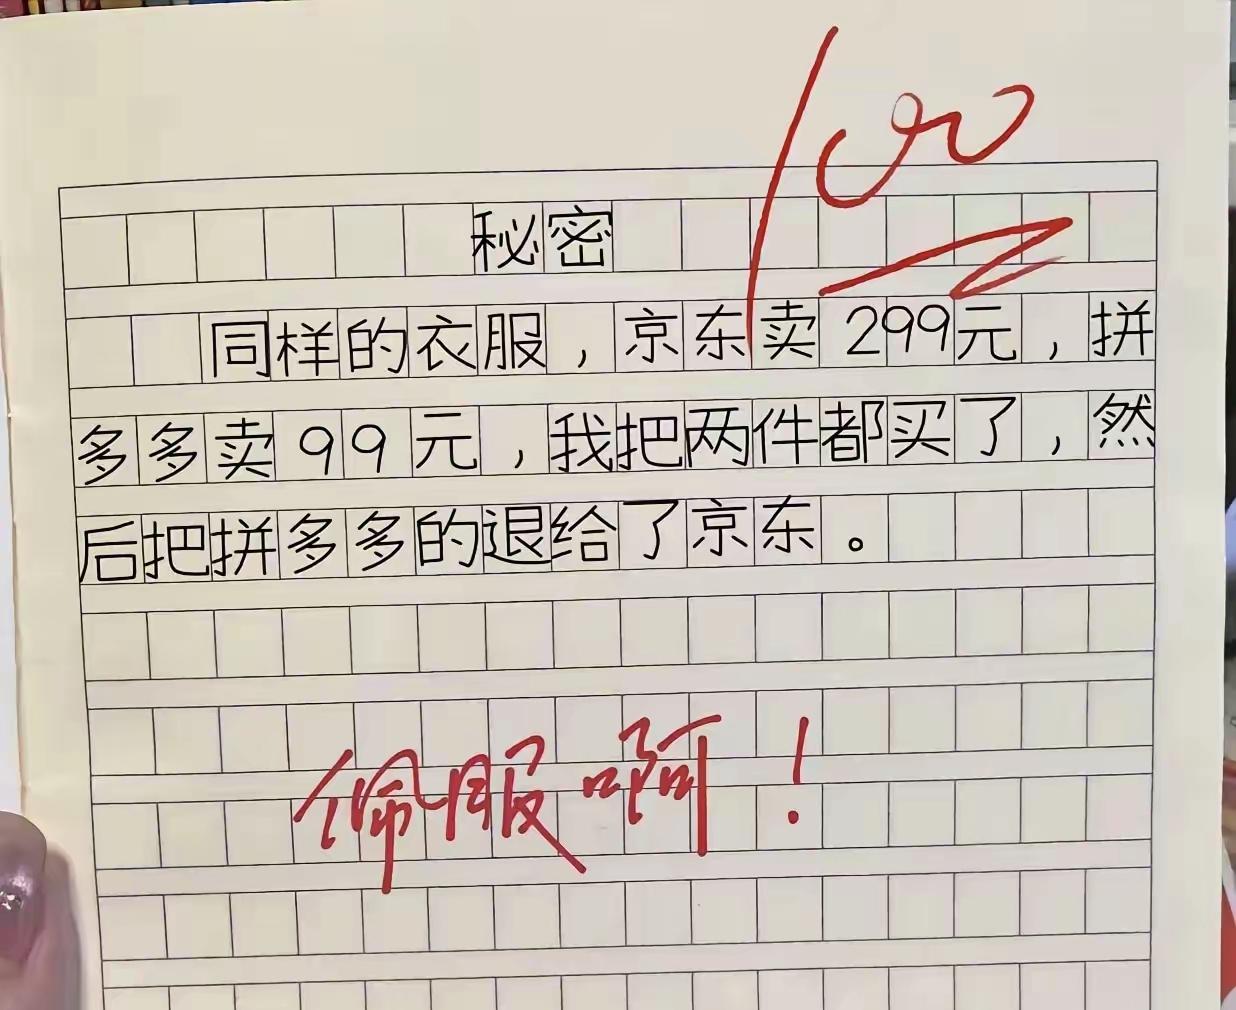 100
秘密
同样的衣服，京东卖299元，拼
多多卖99元，我把两件都买了，然
后把拼多多的退给了京东。
佩服啊！